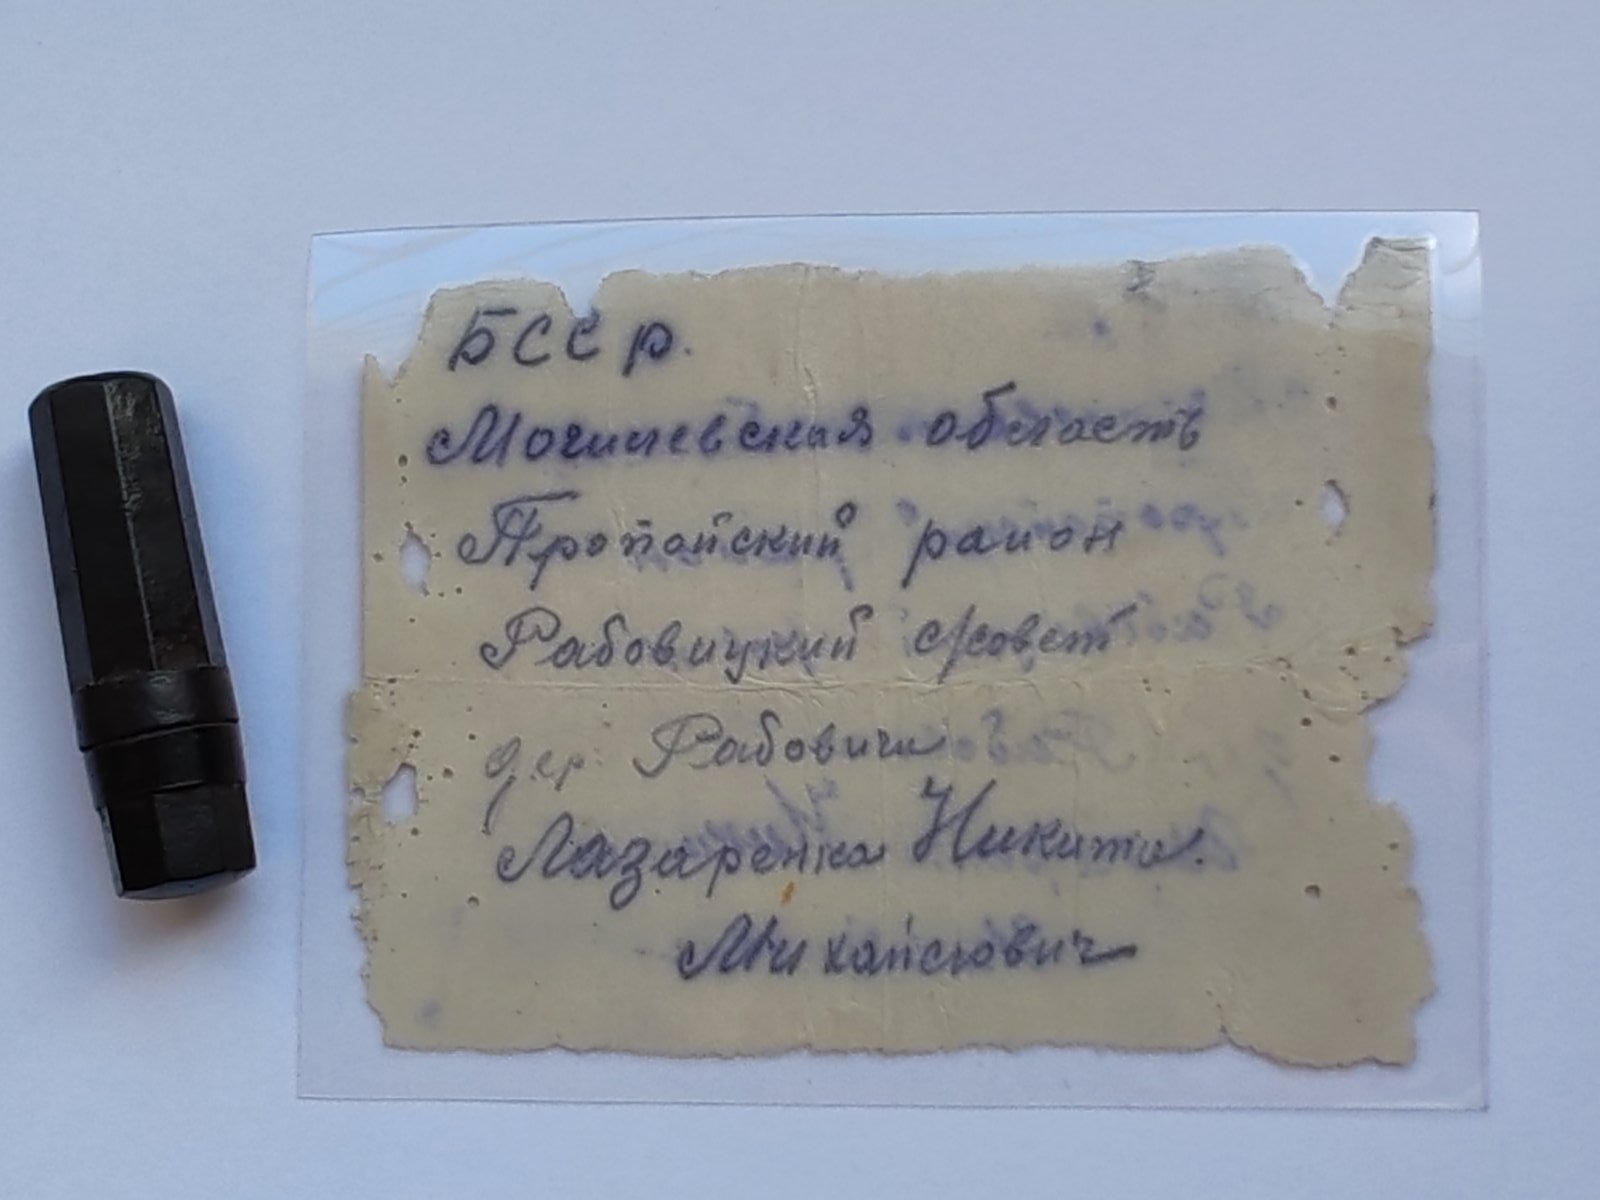 БССР.
Могилевская область
Пропойский район
Рабовицкий с/совет
дер. Рабовичи
Лазаренка Никита.
Михайлович